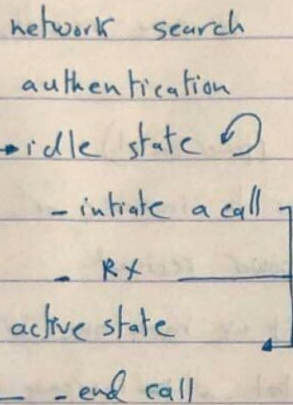 network search
authentication
idle state
- intiate a call
- RX
active state
- end call